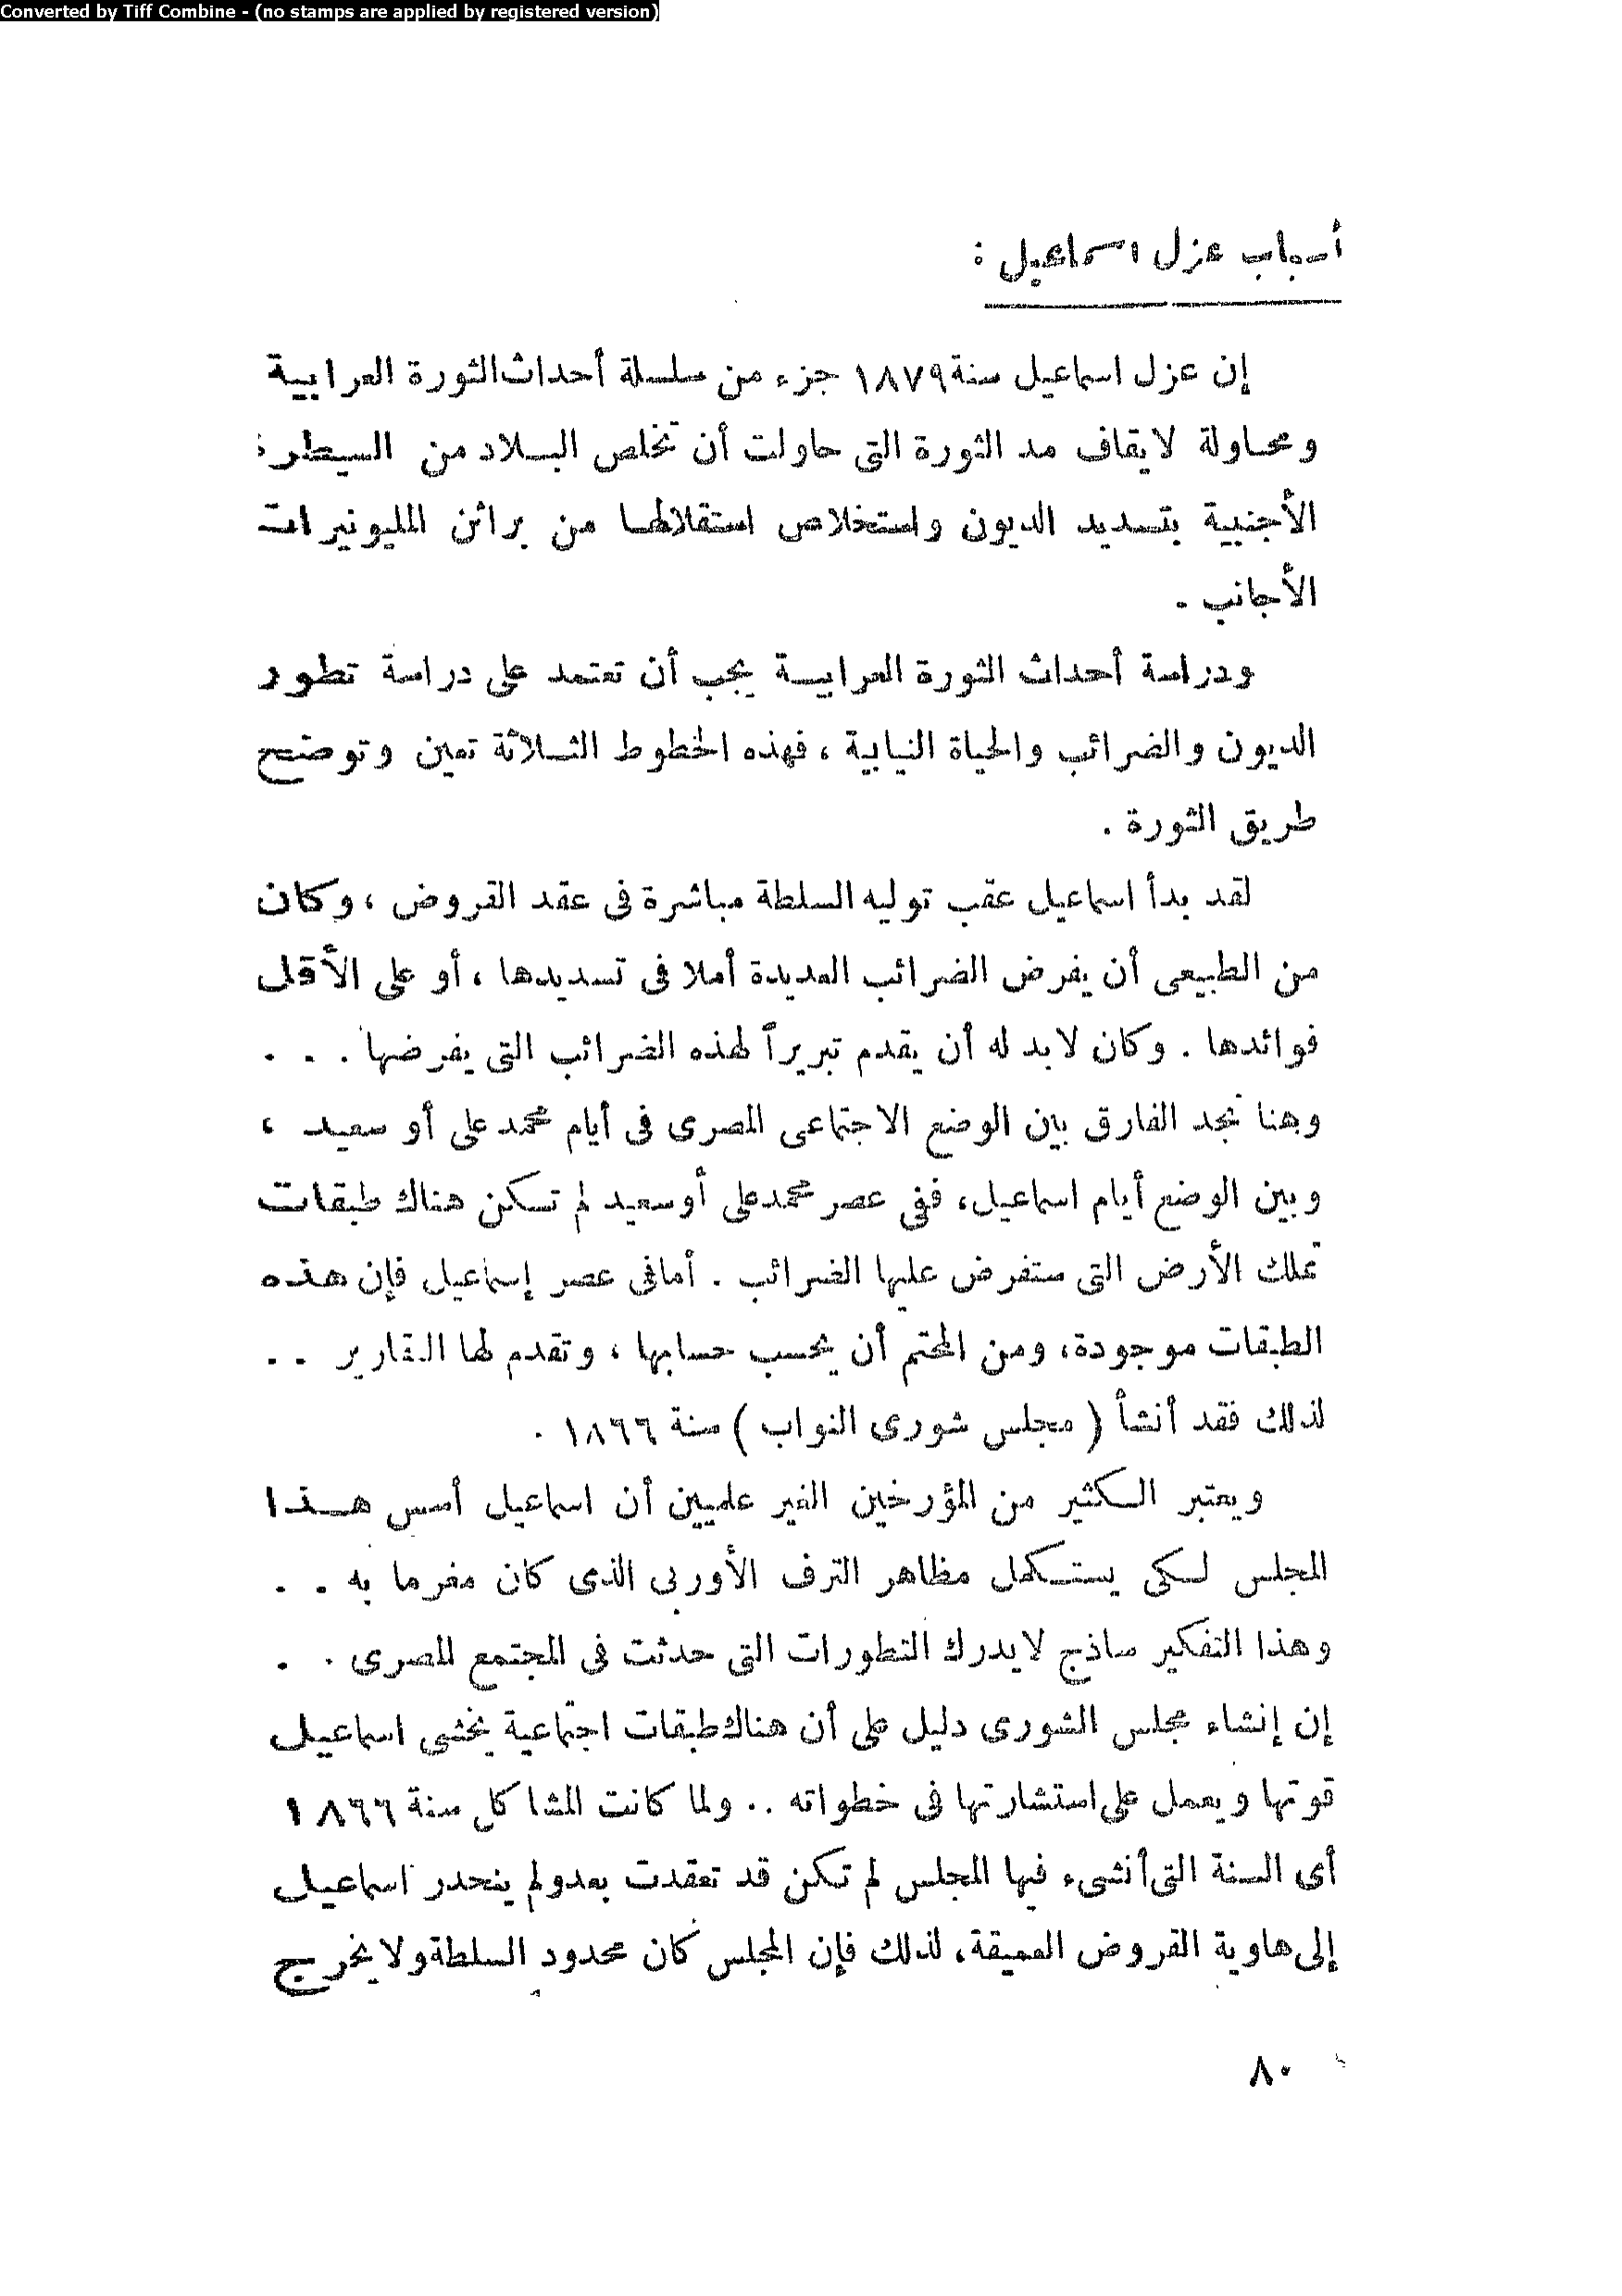 Converted by Tiff Combine - (no stamps are applied by registered version)
أسباب عزل اسماعيل :
إن عزل اسماعيل سنة ١٨٧٩ جزء من سلسلة أحداث الثورة العرابية
ومحاولة لايقاف مد الثورة التى حاولت أن تخلص البلاد من السيطرة
الأجنبية بتسديد الديون واستخلاص استقلالها من براثن المليونيرات
الأجانب .
ودراسة أحداث الثورة العرابية يجب أن تعتمد على دراسة تطور
الديون والضرائب والحياة النيابية ، فهذه الخطوط الثلاثة تعين وتوضح
طريق الثورة .
لقد بدأ اسماعيل عقب توليه السلطة مباشرة فى عقد القروض ، وكان
من الطبيعى أن يفرض الضرائب العديدة أملا فى تسديدها ، أو على الأقل
فوائدها . وكان لابد له أن يقدم تبريراً لهذه الضرائب التى يفرضها . . .
وهنا نجد الفارق بين الوضع الاجتماعى المصرى فى أيام محمد على أو سعيد ،
وبين الوضع أيام اسماعيل ، ففى عصر محمد على أو سعيد لم تكن هناك طبقات
تملك الأرض التى ستفرض عليها الضرائب . أما فى عصر إسماعيل فإن هذه
الطبقات موجودة ، ومن المحتم أن يحسب حسابها ، وتقدم لها التقارير . .
لذلك فقد أنشأ ( مجلس شورى النواب ) سنة ١٨٦٦ .
ويعتبر الكثير من المؤرخين الغير علميين أن اسماعيل أسس هذا
المجلس لكى يستكمل مظاهر الترف الأوربى الذى كان مغرما به . .
وهذا التفكير ساذج لا يدرك التطورات التى حدثت فى المجتمع المصرى . .
إن إنشاء مجلس الشورى دليل على أن هناك طبقات اجتماعية يخشى اسماعيل
قوتها ويعمل على استشارتها فى خطواته . . ولما كانت المشاكل سنة ١٨٦٦
أى السنة التى أنشىء فيها المجلس لم تكن قد تعقدت بعد ولم ينحدر اسماعيل
إلى هاوية القروض العميقة ، لذلك فإن المجلس كان محدود السلطة ولا يخرج
٨٠